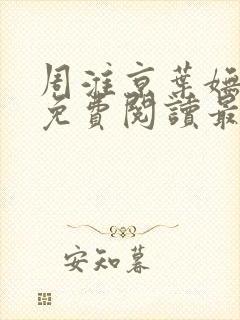 周淮京葉嫵
免費閱讀最
安知暮